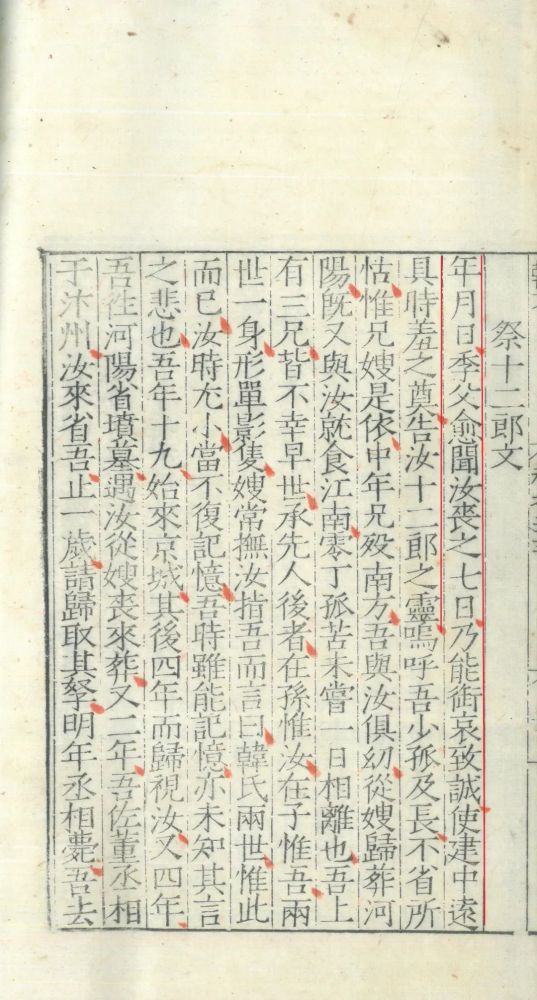 祭十二郎文
年月日季父愈聞汝喪之七日乃能銜哀致誠使建中遠
具時羞之奠告汝十二郎之靈嗚呼吾少孤及長不省所
怙惟兄嫂是依中年兄歿南方吾與汝俱幼從嫂歸葬河
陽旣又與汝就食江南零丁孤苦未嘗一日相離也吾上
有三兄皆不幸早世承先人後者在孫惟汝在子惟吾兩
世一身形單影隻嫂常撫汝指吾而言曰韓氏兩世惟此
而已汝時尤小當不復記憶吾時雖能記憶亦未知其言
之悲也吾年十九始來京城其後四年而歸視汝又四年
吾往河陽省墳墓遇汝從嫂喪來葬又二年吾佐董丞相
于汴州汝來省吾止一歲請歸取其孥明年丞相薨吾去